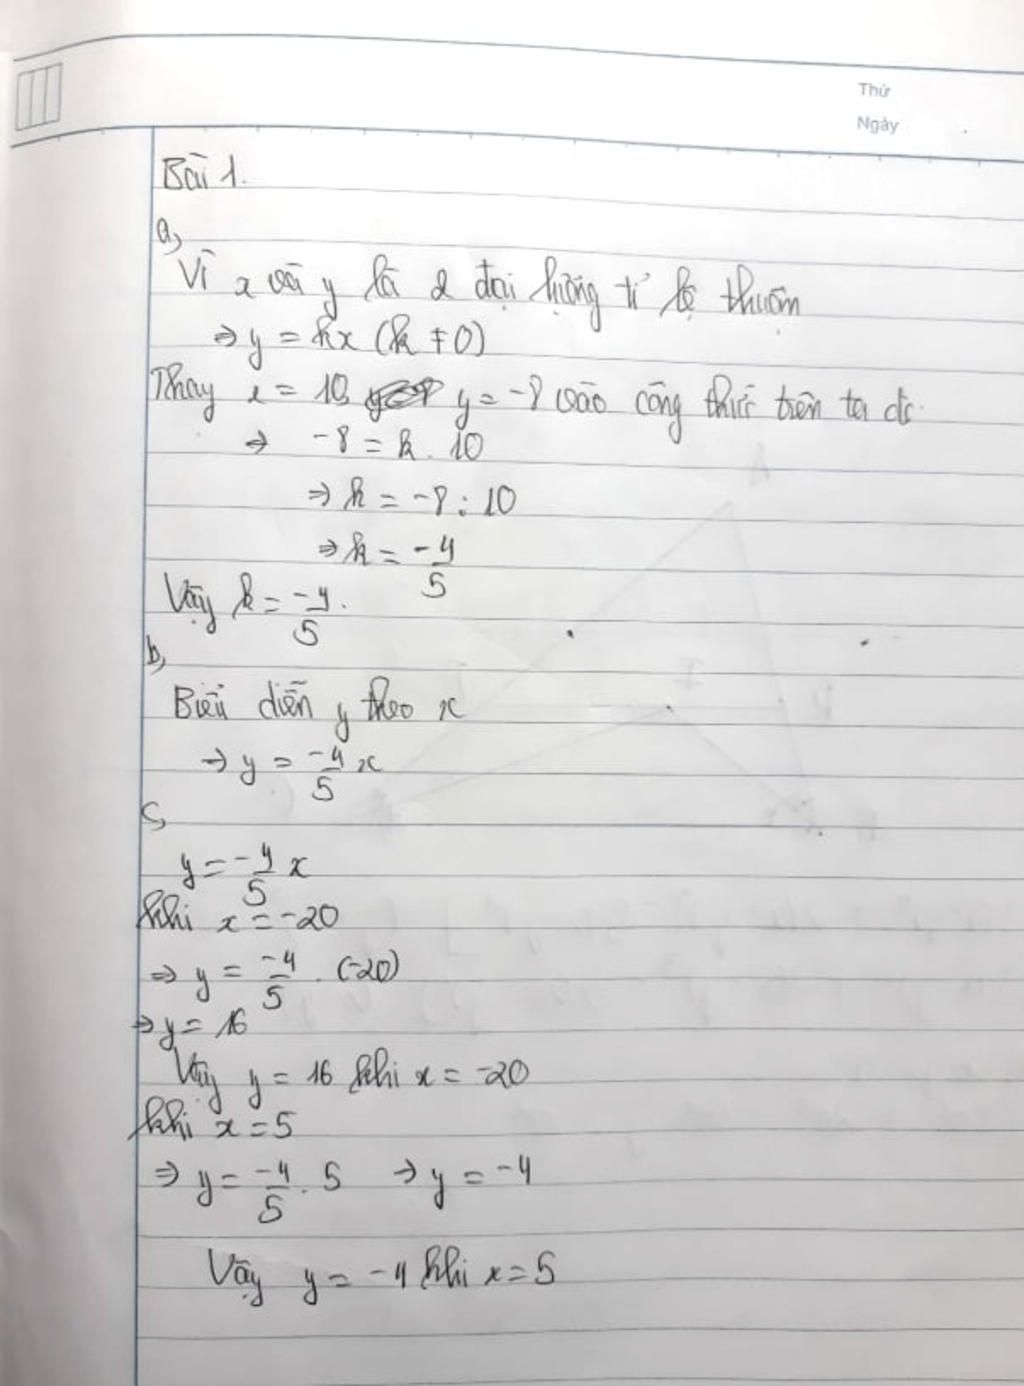 Thứ
Ngày
Bài 1.
a,
Vì x và y là 2 đại lượng tỉ lệ thuận
⇒ y = kx (k ≠ 0)
Thay x = 10, y = -8 vào công thức trên ta đc
⇒ -8 = k . 10
⇒ k = -8 : 10
⇒ k = -4/5
Vậy k = -4/5.
b,
Biểu diễn y theo x
→ y = -4/5 x
c,
y = -4/5 x
khi x = -20
⇒ y = -4/5 . (-20)
⇒ y = 16
Vậy y = 16 khi x = -20
khi x = 5
⇒ y = -4/5 . 5 → y = -4
Vậy y = -4 khi x = 5